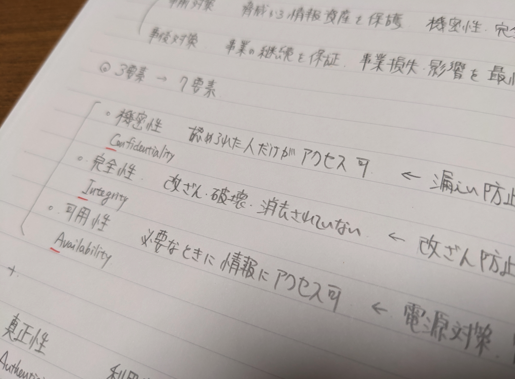 事前対策 脅威から情報資産を保護 機密性、完全
事後対策 事業の継続を保証、事業損失・影響を最小
◎ 3要素 → 7要素
・機密性 認められた人だけがアクセス可 ← 漏えい防止
Confidentiality
・完全性 改ざん・破壊・消去されていない ← 改ざん防止
Integrity
・可用性 必要なときに情報にアクセス可 ← 電源対策、
Availability
+
真正性 利用
Authenti